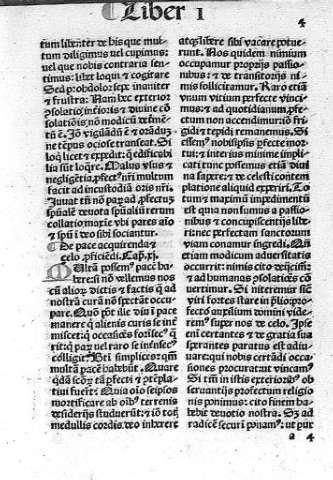 Liber 1
4
tum libenter de his que mul-
tum diligimus vel cupimus:
vel que nobis contraria sen-
timus: libet loqui ⁊ cogitare
Sed ꝓhdolor sepe inaniter
⁊ frustra: Nam hec exterior
ꝯsolatio īterioris ⁊ divine cō
solatiōis nō modicū detrimē-
tū ē. Jō vigilādū ē ⁊ orādū:
ne tēpus ociose transeat. Si
loq̄ licet ⁊ expedit: q̄ edificabi
lia sūt loq̄re. Malus vsus ⁊
negligētia ꝓfect⁹ nr̄i multum
facit ad incustodiā oris nr̄i.
Juvat tn̄ nō par̄ ad ꝓfectuȝ
spūalē devota spūaliū rerum
collatio maxīe vbi pares aīo
⁊ spū ī deo sibi sociantur.
De pace acquirenda ⁊
celo ꝓficiēdi. Cap. xj.
Multā possem⁹ pacē ha-
bere: si nō vellemus nos
cū alioꝝ dictis ⁊ factis q̄ ad
nostrā curā nō spectāt occu-
pare. Quō pōt ille diu ī pace
manere q̄ alienis curis se īmi
miscet: q̄ occasiōes forīsec⁹ q̄
rit: q̄ paꝝ vel raro se īnfsec⁹
colligit: Bēti simplices: qm̄
multā pacē habebūt. Quare
q̄dā scōꝝ tā ꝑfecti ⁊ ꝯtēpla-
tivi fuerūt: Quia oīo seipsos
mortificare ab oīb⁹ terrenis
desiderijs studuerūt: ⁊ iō totis
medullis cordis deo inherere
atq̄ libere sibi vacare potue-
runt. Nos quidem nimium
occupamur proprijs passio-
nibus: ⁊ de transitorijs ni-
mis sollicitamur. Raro etiā
vnum vitium perfecte vinci
mus: ⁊ ad quotidianum ꝓfe-
ctum non accendimur: iō fri
gidi ⁊ tepidi remanemus. Si
essem⁹ nobisipsis ꝑfecte mor-
tui: ⁊ interius minime īplicati
cati tunc possemus etiā divi
na sapere: ⁊ de celesti contem
platione aliquid experiri. To
tum ⁊ maximū impedimentū
est: quia non sumus a passio-
nibus ⁊ concupiscētijs libe-
ri: nec perfectam sanctorum
viam conamur ingredi. Qn̄
etiam modicum adversitatis
occurrit: nimis cito deijcimr̄:
⁊ ad humanas ꝯsolatiōes cō
vertimur. Si niteremur sic
viri fortes stare in plio: ꝓfec-
to auxiliū domini vide-
rem⁹ super nos de celo. Ipse
em̄ certantes ⁊ de gratia sua
sperantes paratus est adiu-
vare: qui nobis certādi occa-
siones procurat: vt vincam⁹
Si tm̄ in istis exterioribꝰ ob
servantijs ꝓfectum religio
nis ponimus: cito finem ha-
bebit devotio nostra. Sȝ ad
radicē securī ponam⁹: vt pur
a 4